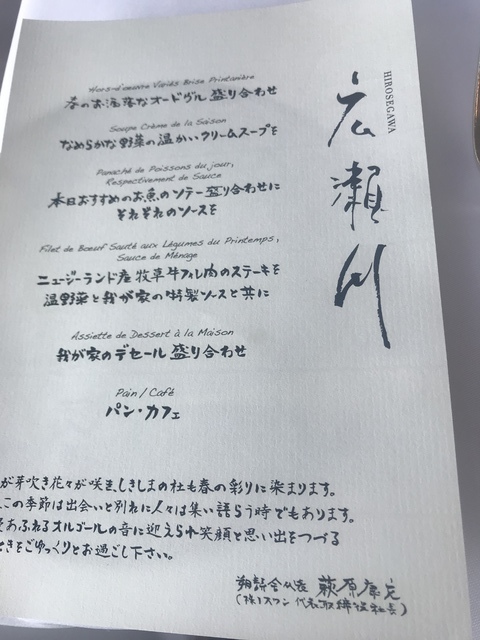 広瀬川
HIROSEGAWA
Hors-d'oeuvre Variés Brise Printanière
春のお洒落なオードヴル盛り合わせ
Soupe Crème de la Saison
なめらかな野菜の温かいクリームスープを
Panaché de Poissons du jour,
Respectivement de Sauce
本日おすすめのお魚のソテー盛り合わせに
それぞれのソースを
Filet de Bœuf Sauté aux Légumes du Printemps,
Sauce de Ménage
ニュージーランド産牧草牛フィレ肉のステーキを
温野菜と我が家の特製ソースと共に
Assiette de Dessert à la Maison
我が家のデセール盛り合わせ
Pain / Café
パン・カフェ
が芽吹き花々が咲き、しきしまの杜も春の彩りに染まります。
この季節は出会いと別れに人々は集い語らう時でもあります。
あふれるオルゴールの音に迎えられ笑顔と思い出をつづる
ときをごゆっくりとお過ごし下さい。
萩原康充
(株)スワン 代表取締役社長)